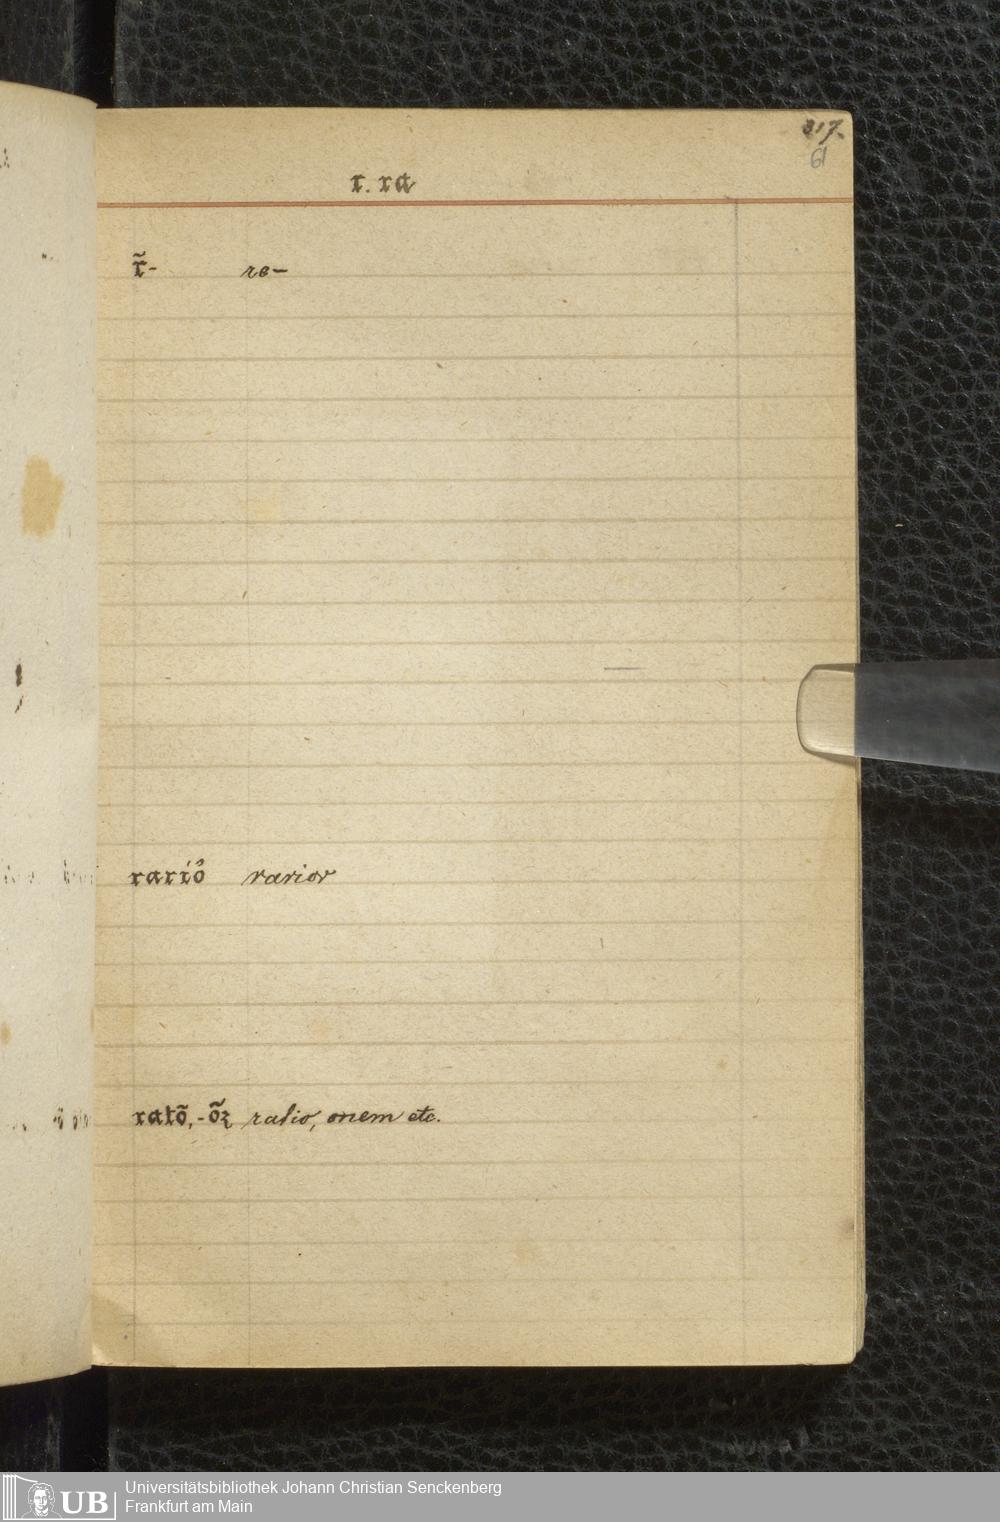 317.
61
r. ra
r̃- re-
rariȯ́ rarior
ratõ, -õꝝ ratio, onem etc.
UB Universitätsbibliothek Johann Christian Senckenberg
Frankfurt am Main